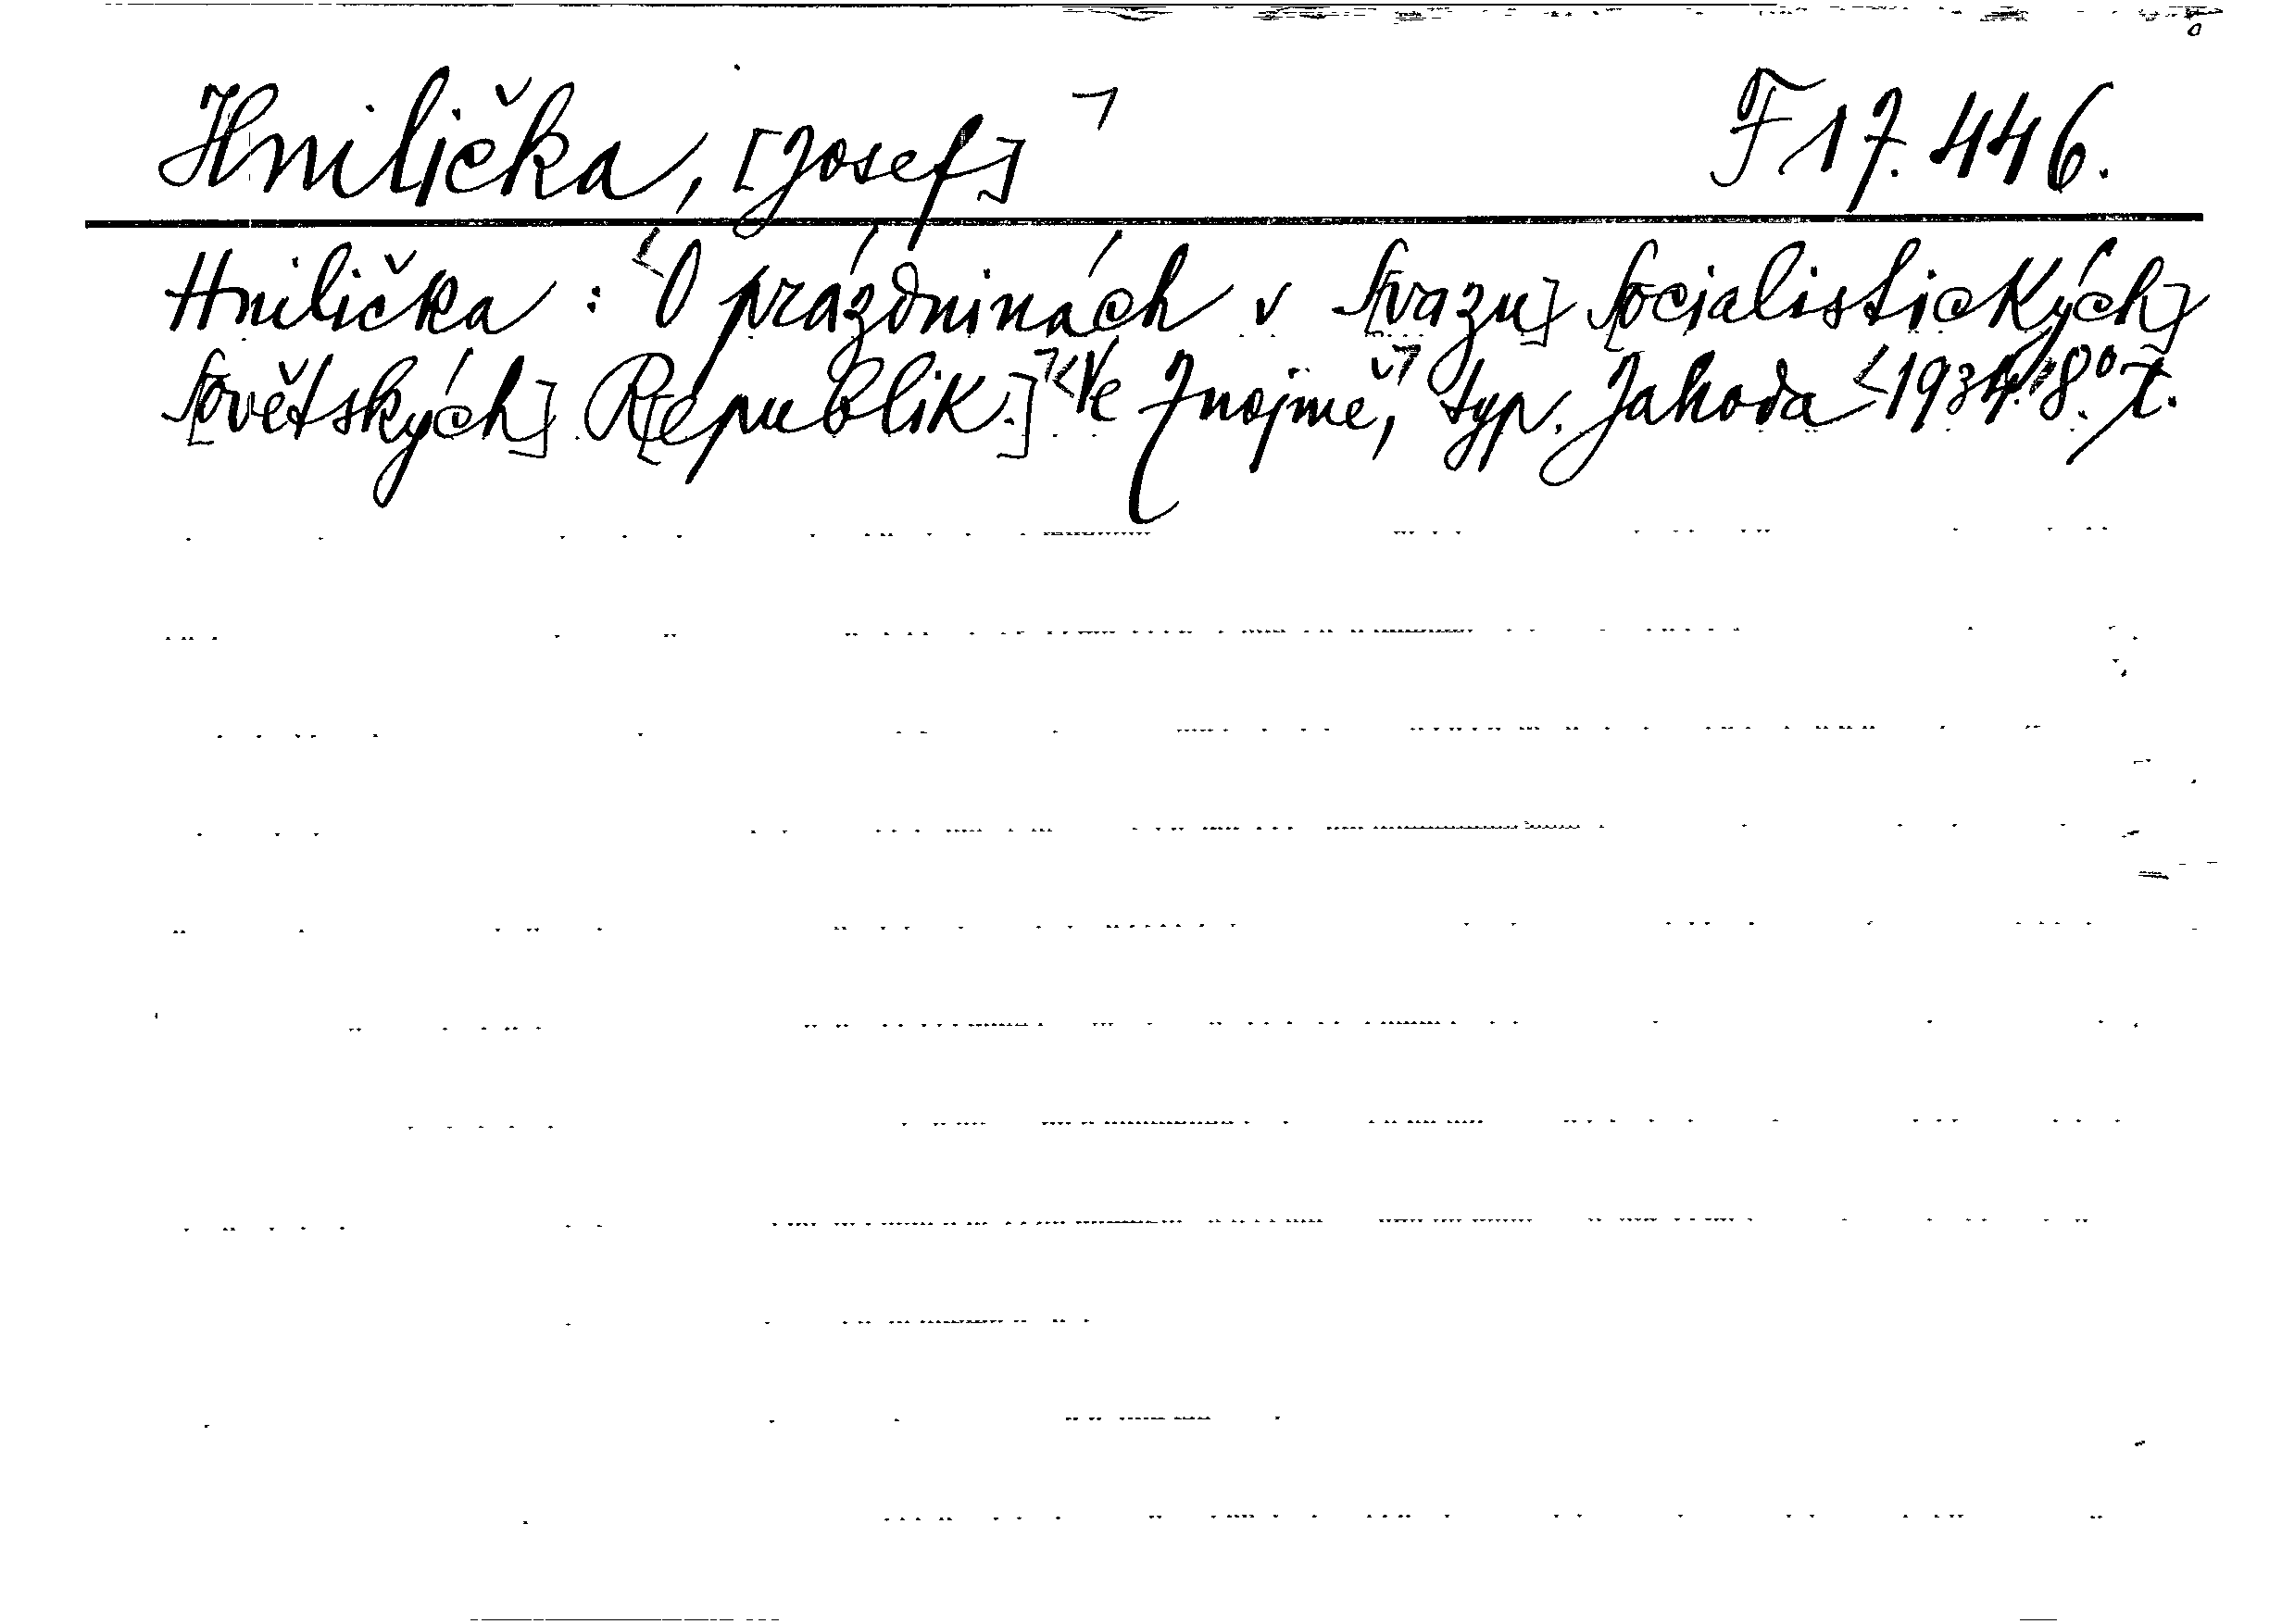 Hnilička, [Josef] F 17.446.
Hnilička : O prázdninách v S[vazu] S[ocialistických]
S[ovětských] R[epublik.] Ve Znojmě, typ. Jahoda 1934. 8°. 7.